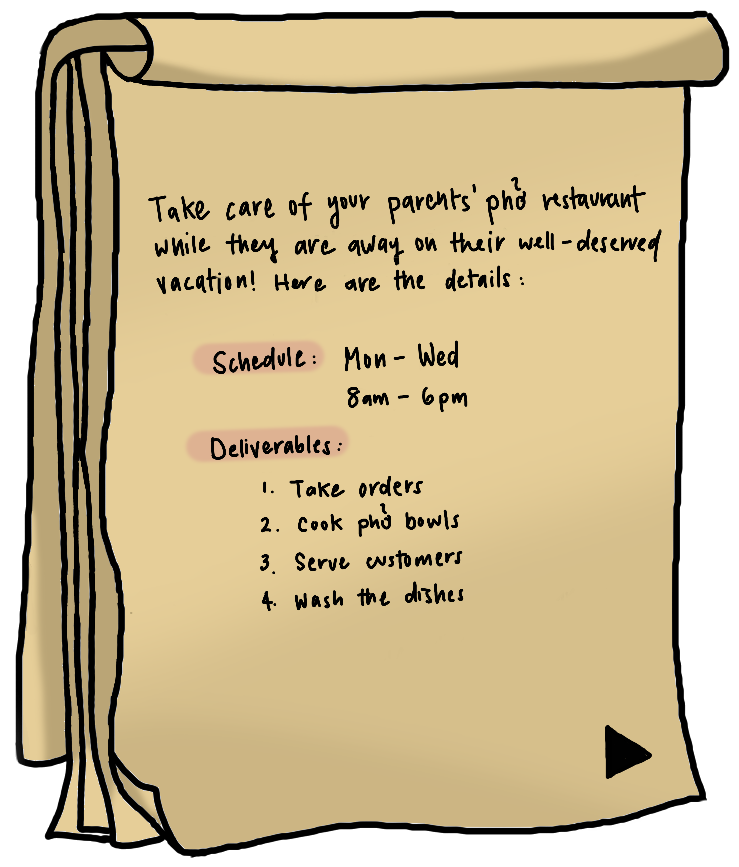 Take care of your parents' phở restaurant
while they are away on their well-deserved
vacation! Here are the details:
Schedule: Mon - Wed
8am - 6pm
Deliverables:
1. Take orders
2. Cook phở bowls
3. Serve customers
4. Wash the dishes